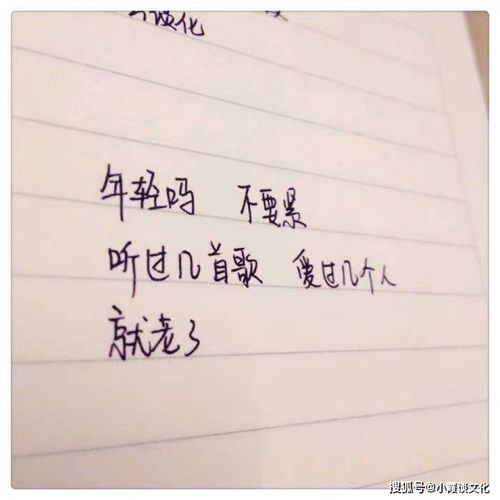 年轻吗 不要紧
听过几首歌 爱过几个人
就老了
搜狐号@小霞谈文化